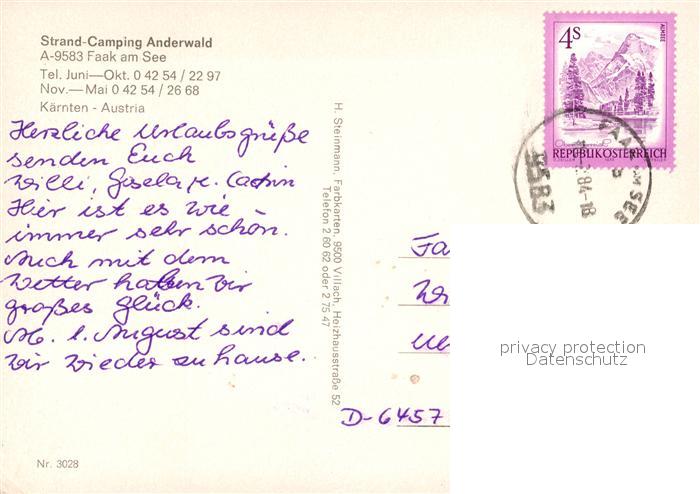 Strand-Camping Anderwald
A-9583 Faak am See
Tel. Juni—Okt. 0 42 54 / 22 97
Nov.—Mai 0 42 54 / 26 68
Kärnten - Austria
Herzliche Urlaubsgrüße
senden Euch
Willi, Gisela u. Catrin
Hier ist es wie
immer sehr schön.
Auch mit dem
Wetter haben wir
großes Glück.
Ab 1. August sind
wir wieder zu hause.
Nr. 3028
H. Steinmann, Farbkarten, 9500 Villach, Heizhausstraße 52
Telefon 2 60 62 oder 2 75 47
4S
ALMSEE
REPUBLIK ÖSTERREICH
FAAK AM SEE
84-18
9583
Fa
We
D-6457
privacy protection
Datenschutz